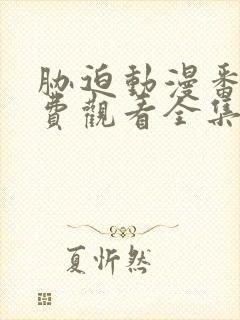 胁迫動漫番
費觀看全集
夏忻然